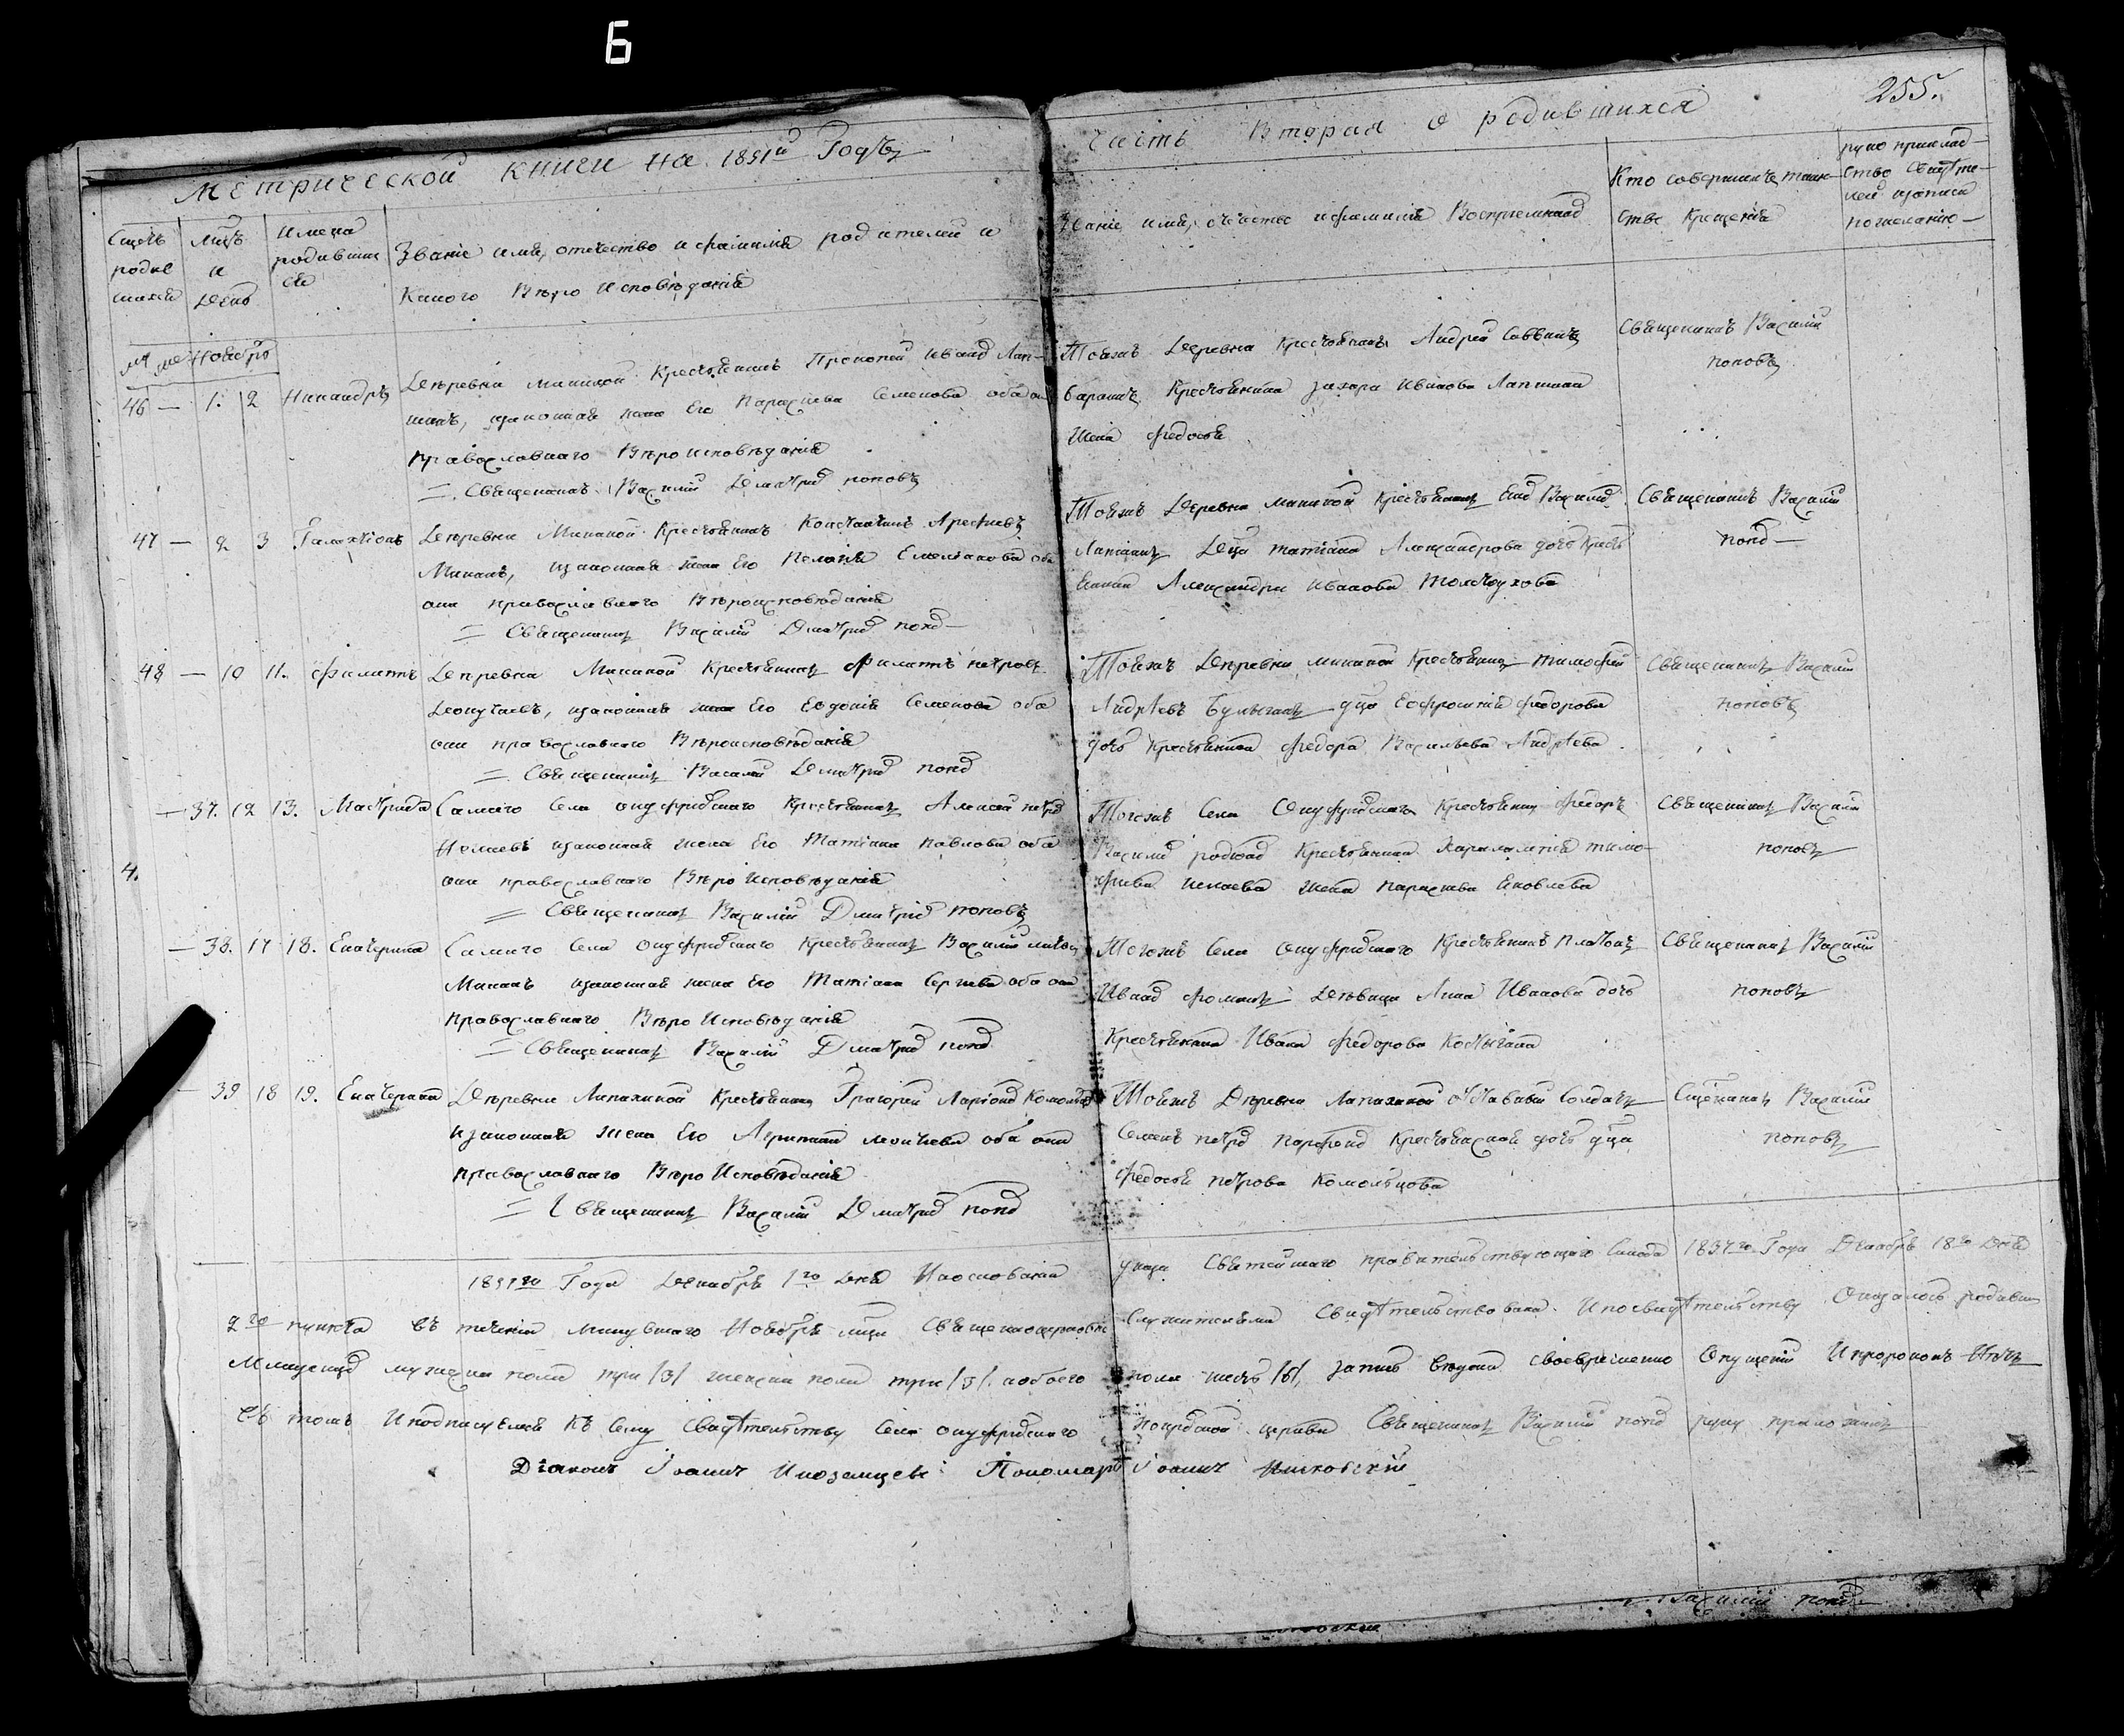 Б
Метрической книги на 1851й Годъ
Часть Вторая о родившихся
255.
Счетъ родив шихся
Мцъ и День
Имена родивших ся
Званіе имя, отечество и фамилія родителей и
Какого Вѣро Исповѣданія
Званіе, имя, отчество и фамилія Воспріемников
Кто совершилъ таин
ство Крещенія
руко приклад
ство Свидѣте
лей записи
по желанію
м ж Ноябрь
46 — 1. 2 Никандръ
Деревни Мининой Крестьянинъ Прокопій Иванов Лап
шинъ, законная жена Его Параскева Семенова оба они
Православнаго Вѣроисповѣданія
= Священникъ Василій Дмитріев поповъ
Тоеяжъ Деревни Крестьянинъ Андрей Саввинъ
Крестьянина Захара Иванова Лапшина
Жена Федосья
Священникъ Василій
поповъ
47 — 2 3 Галактіонъ
Деревни Мининой Крестьянинъ Константинъ Арефьевъ
Мининъ, законная жена Его Пелагія Емеліанова оба
они православнаго Вѣроисповѣданія
= Священникъ Василій Дмитріев попов
Тоеяжъ Деревни мининой Крестьянинъ Василій
Лапшинъ Дѣца татіана Александрова дочь Кресть
янина Александра Иванова
Священникъ Василій
попов
48 — 10 11. Филатъ
Деревни Мининой Крестьянинъ Филатъ петровъ
законная жена Его Евдокія Семенова оба
они православнаго Вѣроисповѣданія
= Священникъ Василій Дмитріев попов
Тоеяжъ Деревни мининой Крестьянинъ тимофей
Андрѣевъ Булыгинъ дца Евфросинія Федорова
дочь Крестьянина Федора Васильева Андрѣева
Священникъ Василій
поповъ
— 37. 12 13. Матрида
Самаго Села онуфріевскаго Крестьянинъ Алексей петров
Исаевъ законная жена Его Татіана павлова оба
они православнаго Вѣро Исповѣданія
= Священникъ Василій Дмитріев поповъ
Тогожъ Села Онуфріевскаго Крестьянинъ Федоръ
Василіев Крестьянина Харлампія тимо
феева Исаева жена параскева Яковлева
Священникъ Василій
поповъ
4.
— 38. 17 18. Екатерина
Самаго Села онуфріевскаго Крестьянинъ Василій
Мининъ законная жена Его Татіана Сергиева оба они
Православнаго Вѣро Исповѣданія
= Священникъ Василій Дмитріев попов
Тогожъ Села онуфріевскаго Крестьянинъ Платонъ
Иванов Фоминъ Дѣвица Анна Иванова дочь
Крестьянина Ивана Федорова Костыгина
Священникъ Василій
поповъ
— 39 18 19. Екатерина
Деревни Лапахиной Крестьянинъ Григорей Ларіонов
Законная жена Его оба они
Православнаго Вѣро Исповѣданія
= Священникъ Василій Дмитріев попов
Тоеяжъ Деревни Лапахиной Отставный Солдатъ
Семенъ петров Крестьянская дочь дца
Федосья петрова Комольцова
Василій
поповъ
1851го Года Декабря 1го Дня На основаніи указа Святейшаго правительствующаго Синода 1837го Года Декабря 18го Дня
2го пункта въ теченіи минувшаго Ноября мца Священноцерковно Служителями Свидѣтельствована. И по свидѣтельству Оказалось родивш
Младенцев мужеска пола три /3/ женска пола три /3/. а обоего пола шесть /6/, запись ведена Своевременно Опущеній И пророковъ нѣтъ
Въ томъ И подписуемся Къ Сему Свидѣтельству Села онуфріевскаго покровской церкви Священникъ Василій попов руку приложилъ
Діаконъ Іоаннъ Иноземцевъ: Пономарь Іоаннъ
Василій попов